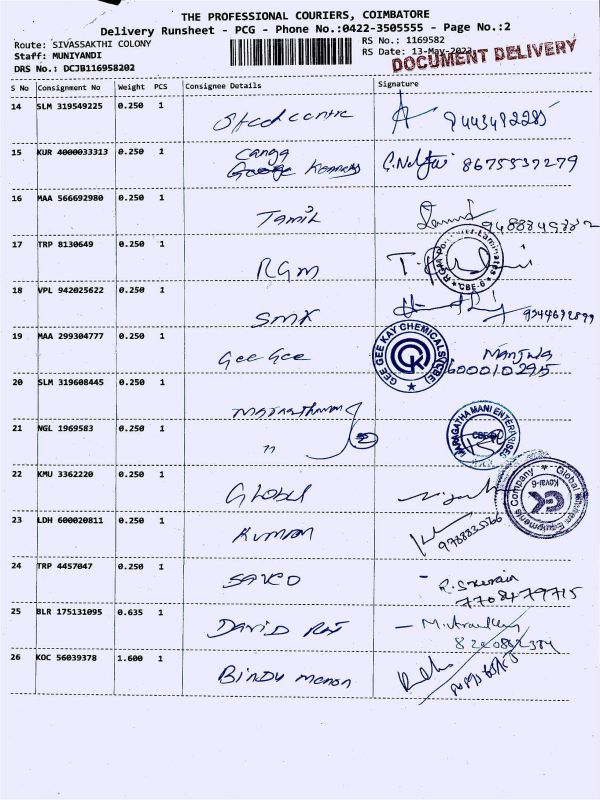 THE PROFESSIONAL COURIERS, COIMBATORE
Delivery Runsheet - PCG - Phone No.:0422-3505555 - Page No.:2
Route: SIVASSAKTHI COLONY
RS No.: 1169582
Staff: MUNIYANDI
RS Date: 13-May-2023
DRS No.: DCJB116958202
DOCUMENT DELIVERY
S No Consignment No Weight PCS Consignee Details Signature
14 SLM 319549225 0.250 1 Steel centre
15 KUR 4000033313 0.250 1 Canga 8675537279
George Kennedy
16 MAA 566692980 0.250 1 Tamil
17 TRP 8130649 0.250 1 RGM
CBE-6
18 VPL 942025622 0.250 1 SMK 9244692899
19 MAA 299304777 0.250 1 Gee Gee Manjula
GEE GEE KAY CHEMICALS (CBE) 600010295
20 SLM 319608445 0.250 1
21 NGL 1969583 0.250 1 "
MARAGATHA MANI ENTERPRISES
22 KMU 3362220 0.250 1 Global
Global Kitchen Equipments Company Kovai-6 GK
23 LDH 600020811 0.250 1 Kumaran 9788835266
24 TRP 4457047 0.250 1 SAVCO
7708479715
25 BLR 175131095 0.635 1 DAVID RAJ
26 KOC 56039378 1.600 1 Bindu menon